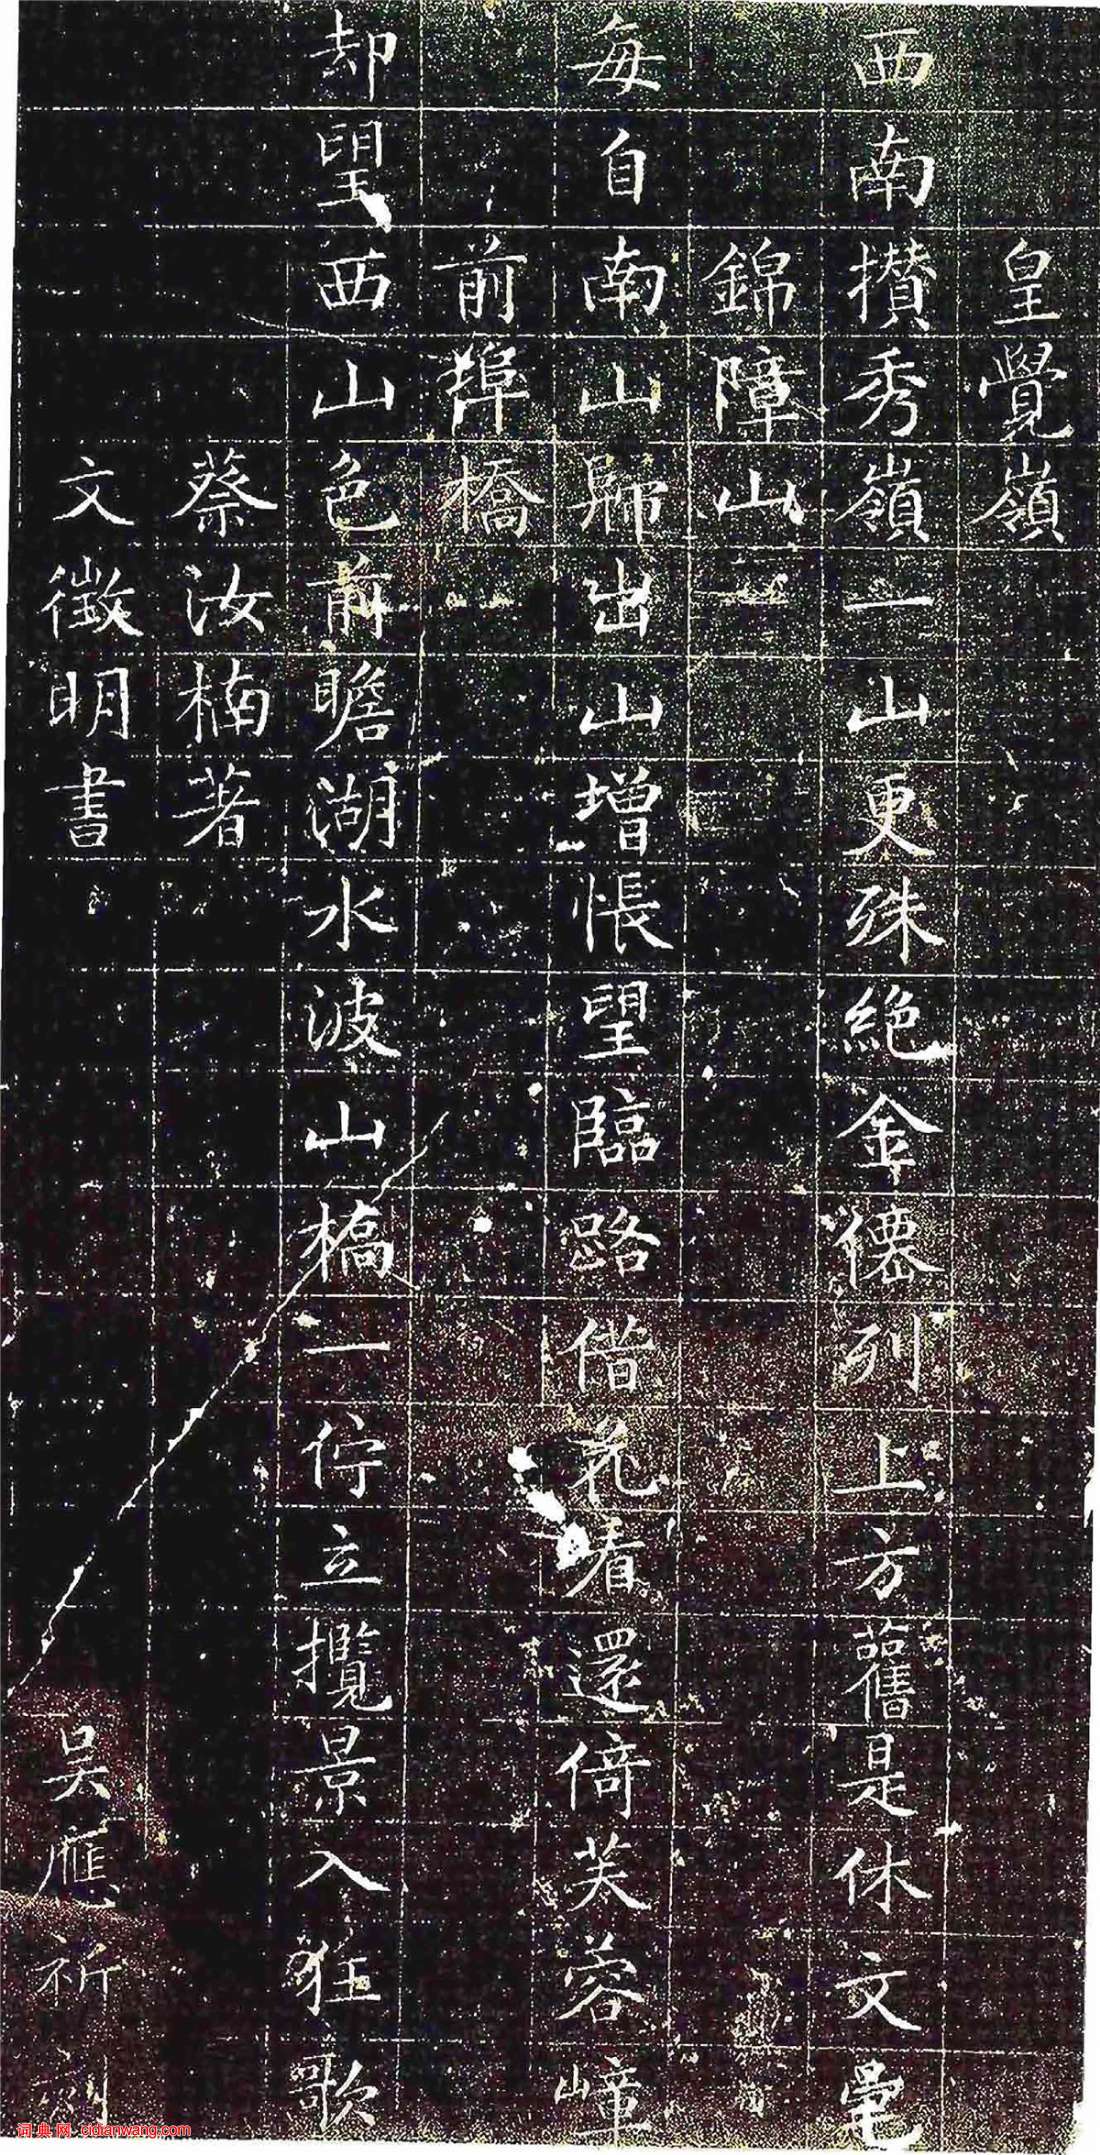 皇覺嶺
西南攢秀嶺一山更殊絶金僊列上方舊是休文宅
錦障山
每自南山歸出山增悵望臨路借花看還倚芙蓉嶂
前埠橋
却望西山色前瞻湖水波山橋一佇立攬景入狂歌
蔡汝楠著
文徵明書
吴應祈刻
词典网 cidianwang.com